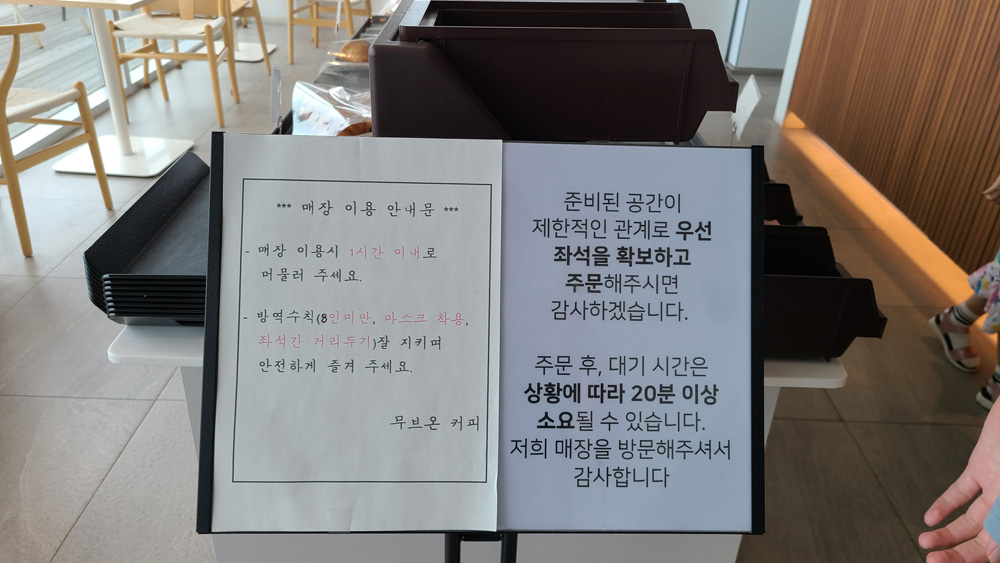 *** 매장 이용 안내문 ***
- 매장 이용시 1시간 이내로
머물러 주세요.
- 방역수칙(8인미만, 마스크 착용,
좌석간 거리두기)잘 지키며
안전하게 즐겨 주세요.
무브온 커피
준비된 공간이
제한적인 관계로 우선
좌석을 확보하고
주문해주시면
감사하겠습니다.
주문 후, 대기 시간은
상황에 따라 20분 이상
소요될 수 있습니다.
저희 매장을 방문해주셔서
감사합니다